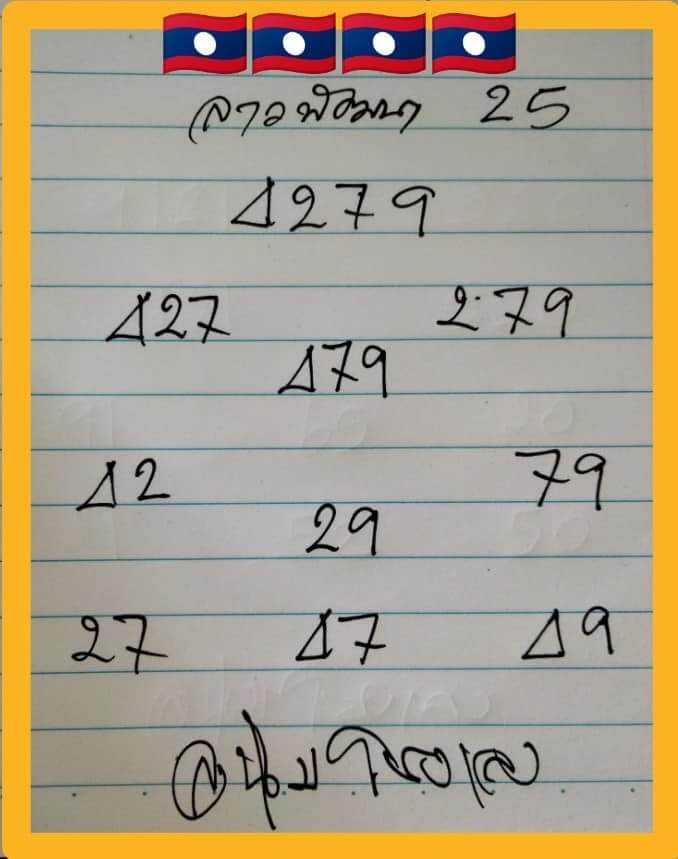 ลาวพัฒนา 25
1279
127 279
179
12 79
29
27 17 19